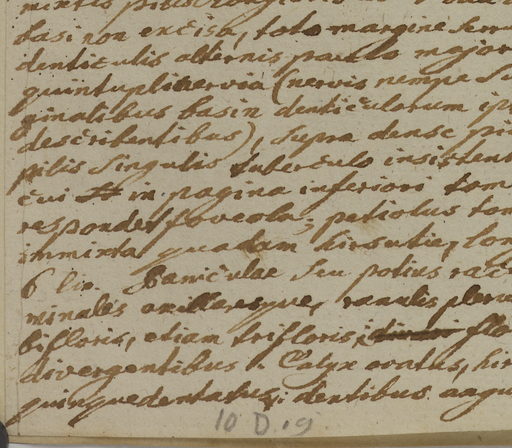 basi non excisa, toto margine serr
denticulis alternis paulo major
quintuplinervia (nervis nempe su
ginalibus basin denticulorum ip
describentibus), supra dense pi
pilis singulis tuberculo insistent
cui in pagina inferiori tom
respondet foveola; petiolus tom
immixta quadam hirsutie, lon
6 lin. Paniculae seu potius race
minales axillaresque, ramulis pleru
bifloris, etiam trifloris, flo
divergentibus. Calyx ovatus, hir
quinquedentatus; dentibus angu
10 D. 9.